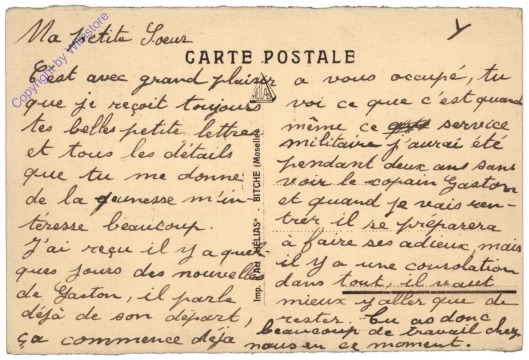 Ma petite Soeur
CARTE POSTALE
C'est avec grand plaisir
que je reçoit toujours
tes belles petite lettres
et tous les détails
que tu me donne
de la jeunesse m'in-
téresse beaucoup.
J'ai reçu il y a quel-
ques jours des nouvelles
de Gaston, il parle
déjà de son départ,
ça commence déjà
a vous occupé, tu
voi ce que c'est quand
même ce service
militaire j'aurai été
pendant deux ans sans
voir le copain Gaston
et quand je vais ren-
trer il se préparera
à faire ses adieux, mais
il y a une consolation
dans tout, il vaut
mieux y aller que de
rester. Tu as donc
beaucoup de travail chez
nous en ce moment.
Imp. d'Art "HÉLIAS" - BITCHE (Moselle)
Copyright by Whastore